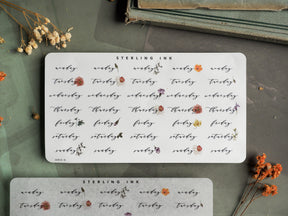 STERLING INK
monday monday monday monday monday
tuesday tuesday tuesday tuesday tuesday
wednesday wednesday wednesday wednesday wednesday
thursday thursday thursday thursday thursday
friday friday friday friday friday
saturday saturday saturday saturday saturday
sunday sunday sunday sunday sunday
STERLING INK